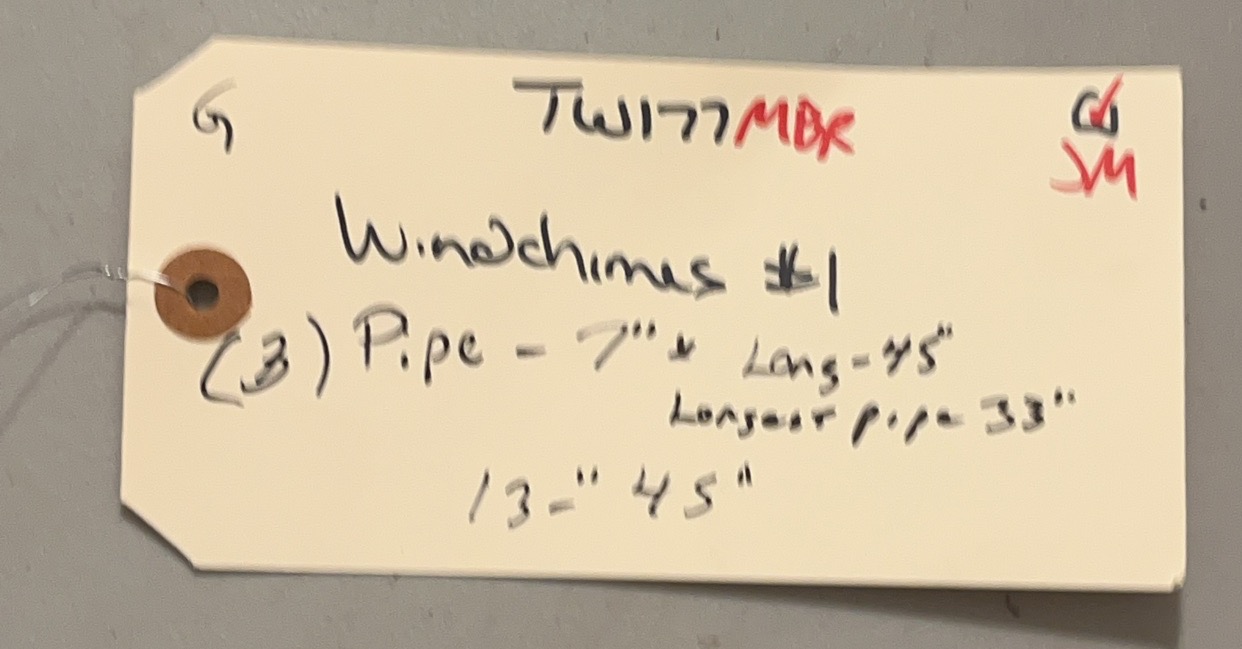 G TW177MBR
JM
Windchimes #1
(3) Pipe - 7" x Long - 45"
Longest pipe 33"
13-" 45"